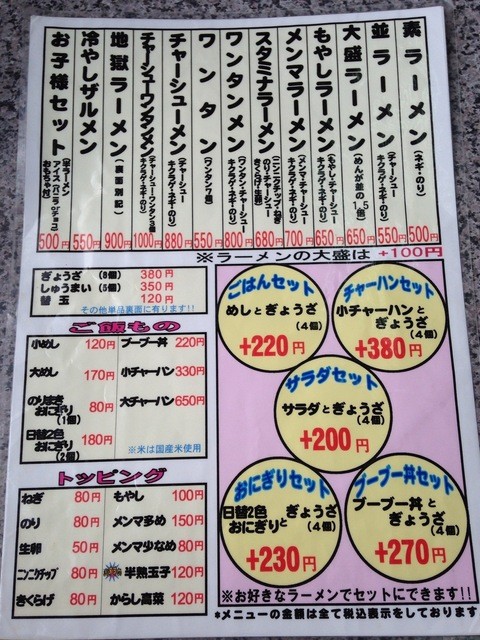 素ラーメン (ネギ・のり) 500円
並ラーメン (チャーシュー キクラゲ・ネギ・のり) 550円
大盛ラーメン (めんが並の1.5倍) 650円
もやしラーメン (もやし・チャーシュー キクラゲ・ネギ・のり) 650円
メンマラーメン (メンマ・チャーシュー キクラゲ・ネギ・のり) 700円
スタミナラーメン (ニンニクチップ・ねぎ のり・チャーシュー きくらげ・生卵) 680円
ワンタンメン (ワンタン・チャーシュー キクラゲ・ネギ・のり) 800円
ワンタン (ワンタン7個) 550円
チャーシューメン (チャーシュー キクラゲ・ネギ・のり) 880円
チャーシューワンタンメン (チャーシュー・ワンタン3個 キクラゲ・ネギ・のり) 1000円
地獄ラーメン (裏面別記) 900円
冷やしザルメン 550円
お子様セット (半ラーメン アイス(バニラorチョコ) おもちゃ付) 500円
※ラーメンの大盛は +100円
ぎょうざ (8個) 380円
しゅうまい (5個) 350円
替玉 120円
その他単品裏面に有ります!!
ご飯もの
小めし 120円
大めし 170円
のりまきおにぎり (1個) 80円
日替2色おにぎり (2個) 180円
ブーブー丼 220円
小チャーハン 330円
大チャーハン 650円
※米は国産米使用
トッピング
ねぎ 80円
のり 80円
生卵 50円
ニンニクチップ 80円
きくらげ 80円
もやし 100円
メンマ多め 150円
メンマ少なめ 80円
半熟玉子 120円
からし高菜 120円
ごはんセット
めしとぎょうざ
(4個)
+220円
チャーハンセット
小チャーハンと
ぎょうざ
(4個)
+380円
サラダセット
サラダとぎょうざ
(4個)
+200円
おにぎりセット
日替2色
おにぎりと ぎょうざ
(4個)
+230円
ブーブー丼セット
ブーブー丼と
ぎょうざ
(4個)
+270円
※お好きなラーメンでセットにできます!!
*メニューの金額は全て税込表示をしております